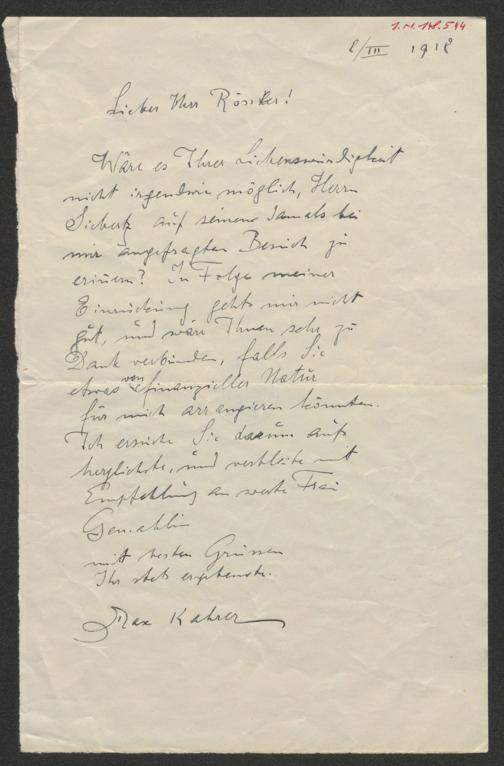 I.N. 148.544
8/III 1918
Lieber Herr Rössler!
Wäre es Ihrer Liebenswürdigkeit
nicht irgendwie möglich, Herrn
auf seinen damals bei
mir angefragten Besuch zu
erinern? In Folge meiner
Einrückung gehts mir nicht
gut, und wäre Ihnen sehr zu
Dank verbunden, falls Sie
etwas von finanzieller Natur
für mich arrangieren könnten.
Ich ersuche Sie darum aufs
herzlichste, und verbleibe mit
Empfehlung an werte Frau
Gemahlin
mit besten Grüssen
Ihr stets ergebenster
Max Kahrer